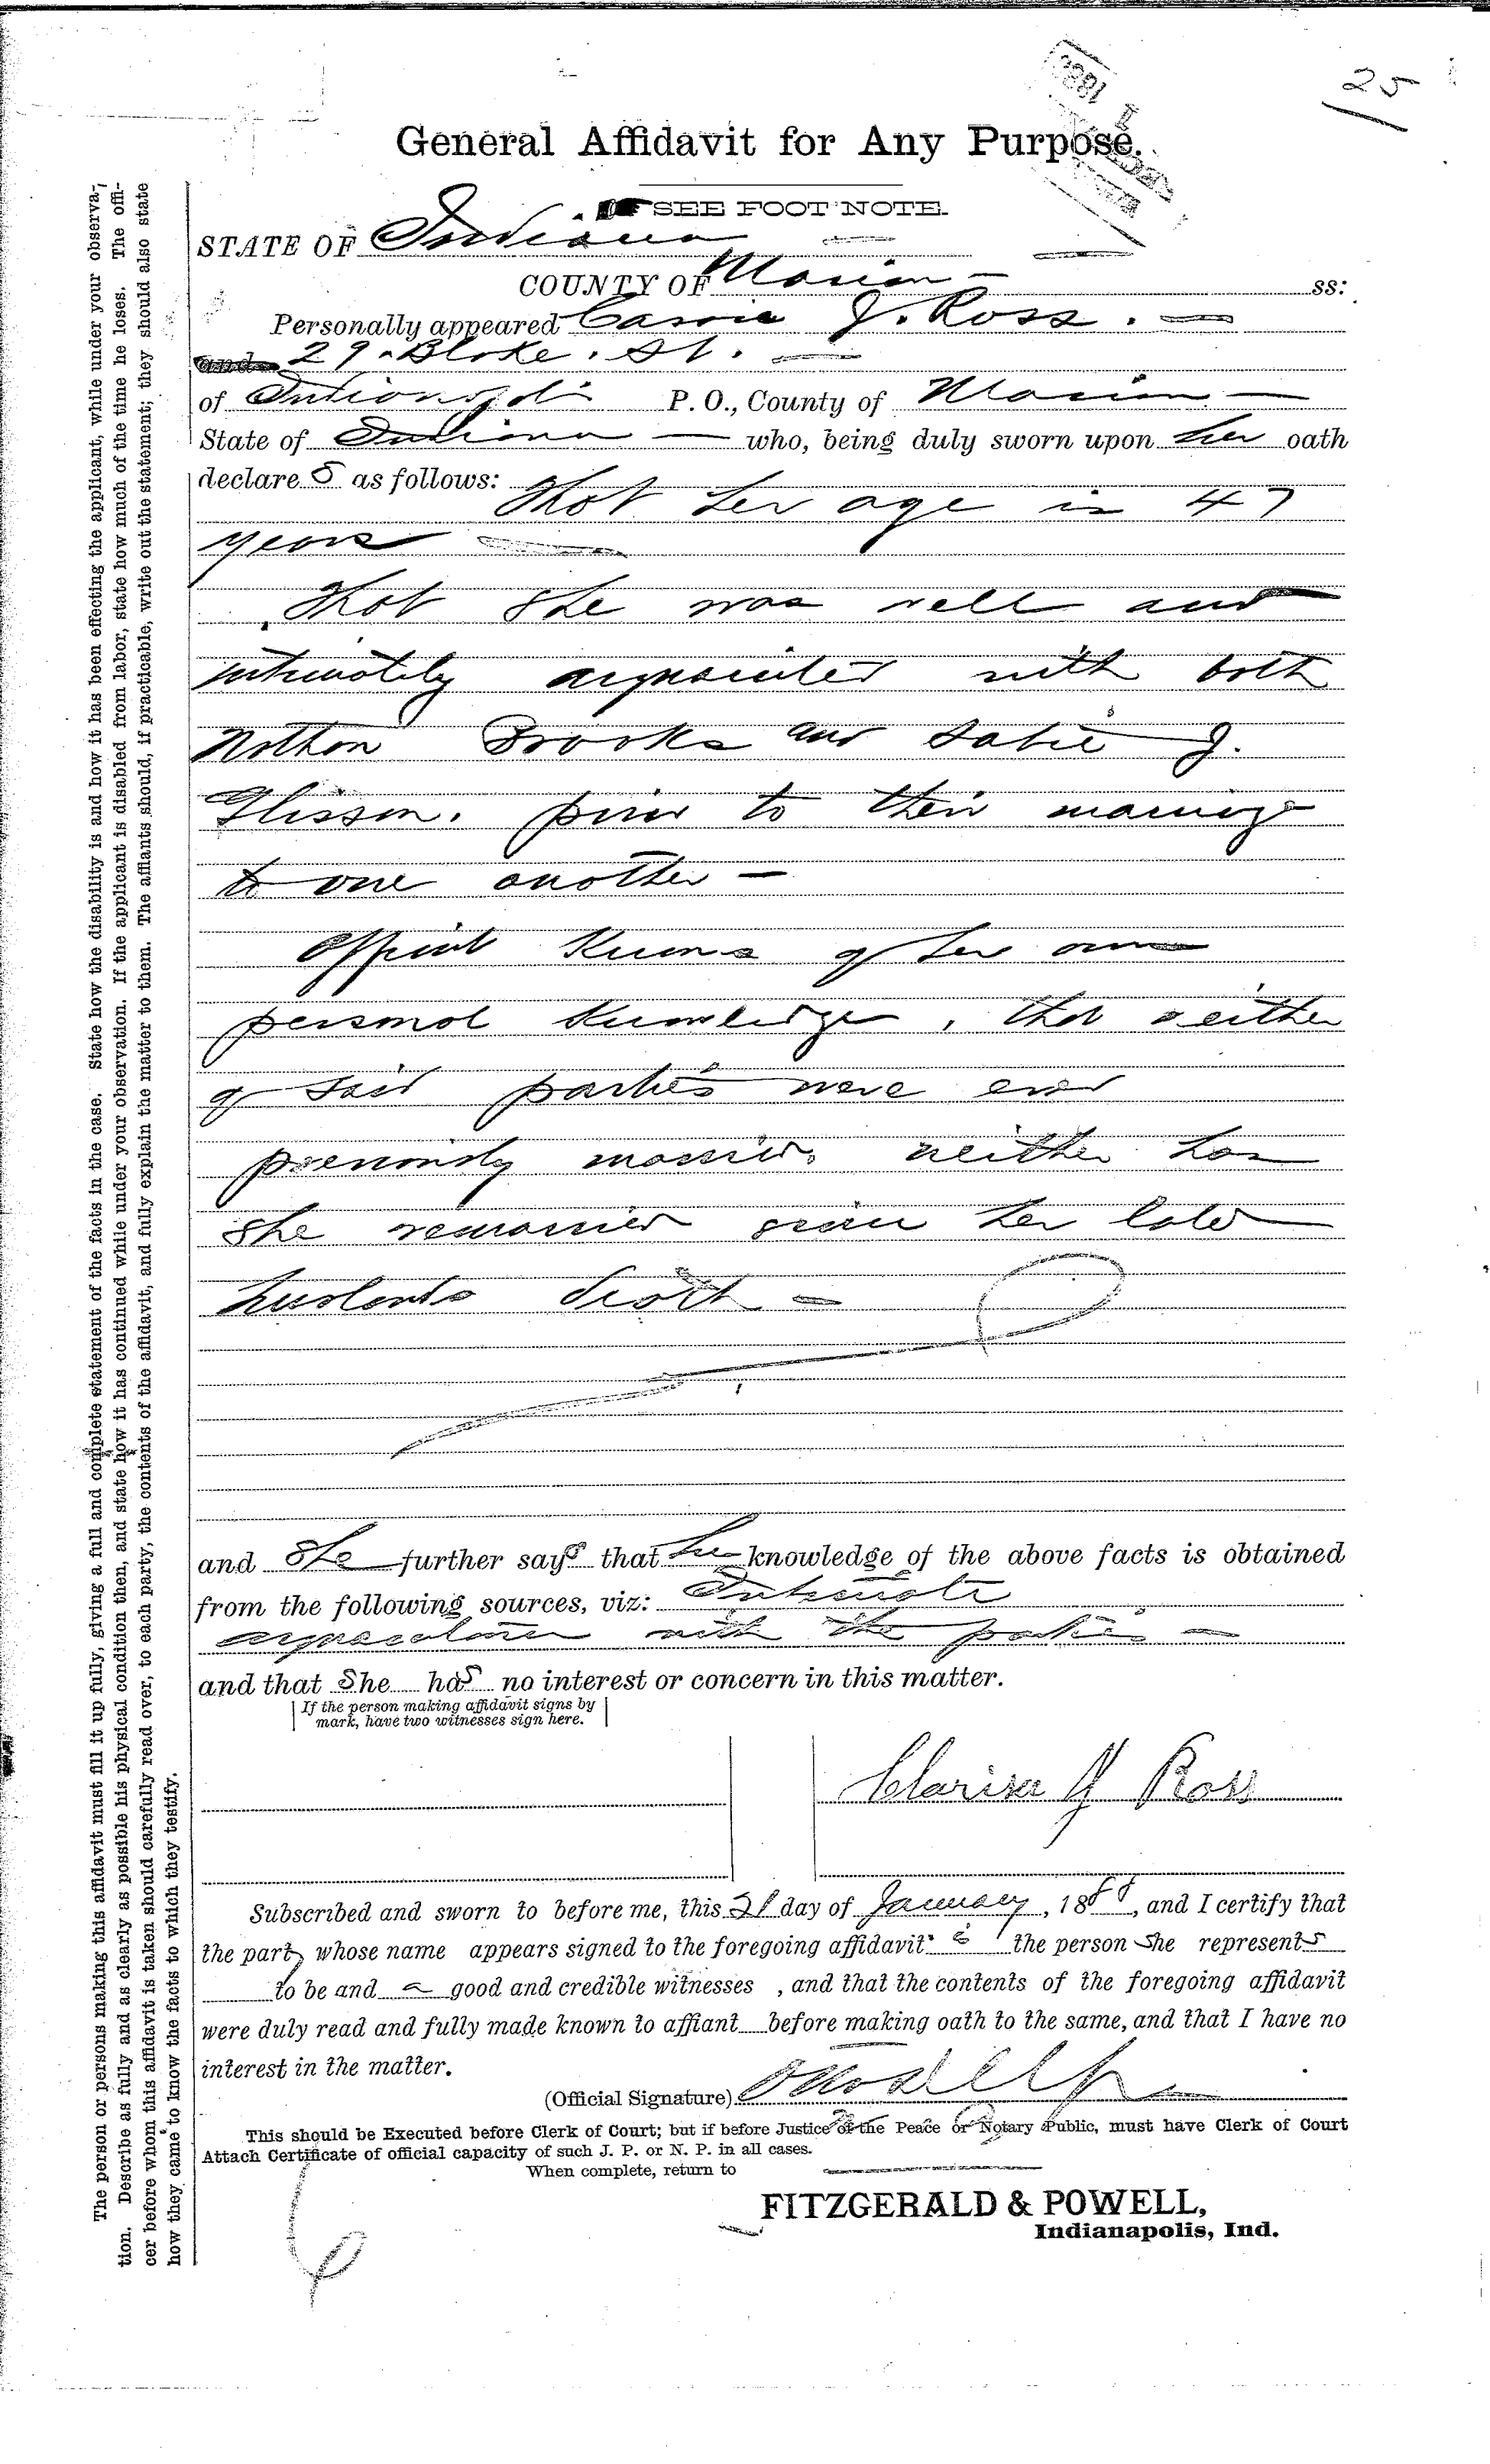 25
General Affidavit for Any Purpose.
SEE FOOT NOTE.
STATE OF Indiana
COUNTY OF Marion ss:
Personally appeared Carrie J. Ross.
and 29 Blake. St.
of Indianapolis P. O., County of Marion
State of Indiana who, being duly sworn upon her oath
declare s as follows: That her age is 47
years
That She was well and
intimately acquainted with both
Nathan Brooks and Satie J.
Glisson. prior to their marriage
to one another –
Affiant knows of her own
personal knowledge, that neither
of said parties were ever
previously married, neither has
She remarried since her late
husbands death –
and She further says that her knowledge of the above facts is obtained
from the following sources, viz: Intimate
acquaintance with the parties –
and that She has no interest or concern in this matter.
If the person making affidavit signs by
mark, have two witnesses sign here.
Clarisa J Ross
Subscribed and sworn to before me, this 21 day of January, 1888, and I certify that
the party whose name appears signed to the foregoing affidavit is the person She represents
to be and a good and credible witnesses , and that the contents of the foregoing affidavit
were duly read and fully made known to affiant before making oath to the same, and that I have no
interest in the matter.
(Official Signature)
This should be Executed before Clerk of Court; but if before Justice of the Peace or Notary Public, must have Clerk of Court
Attach Certificate of official capacity of such J. P. or N. P. in all cases.
When complete, return to
FITZGERALD & POWELL,
Indianapolis, Ind.
The person or persons making this affidavit must fill it up fully, giving a full and complete statement of the facts in the case. State how the disability is and how it has been effecting the applicant, while under your observa-
tion. Describe as fully and as clearly as possible his physical condition then, and state how it has continued while under your observation. If the applicant is disabled from labor, state how much of the time he loses. The offi-
cer before whom this affidavit is taken should carefully read over, to each party, the contents of the affidavit, and fully explain the matter to them. The affiants should, if practicable, write out the statement; they should also state
how they came to know the facts to which they testify.